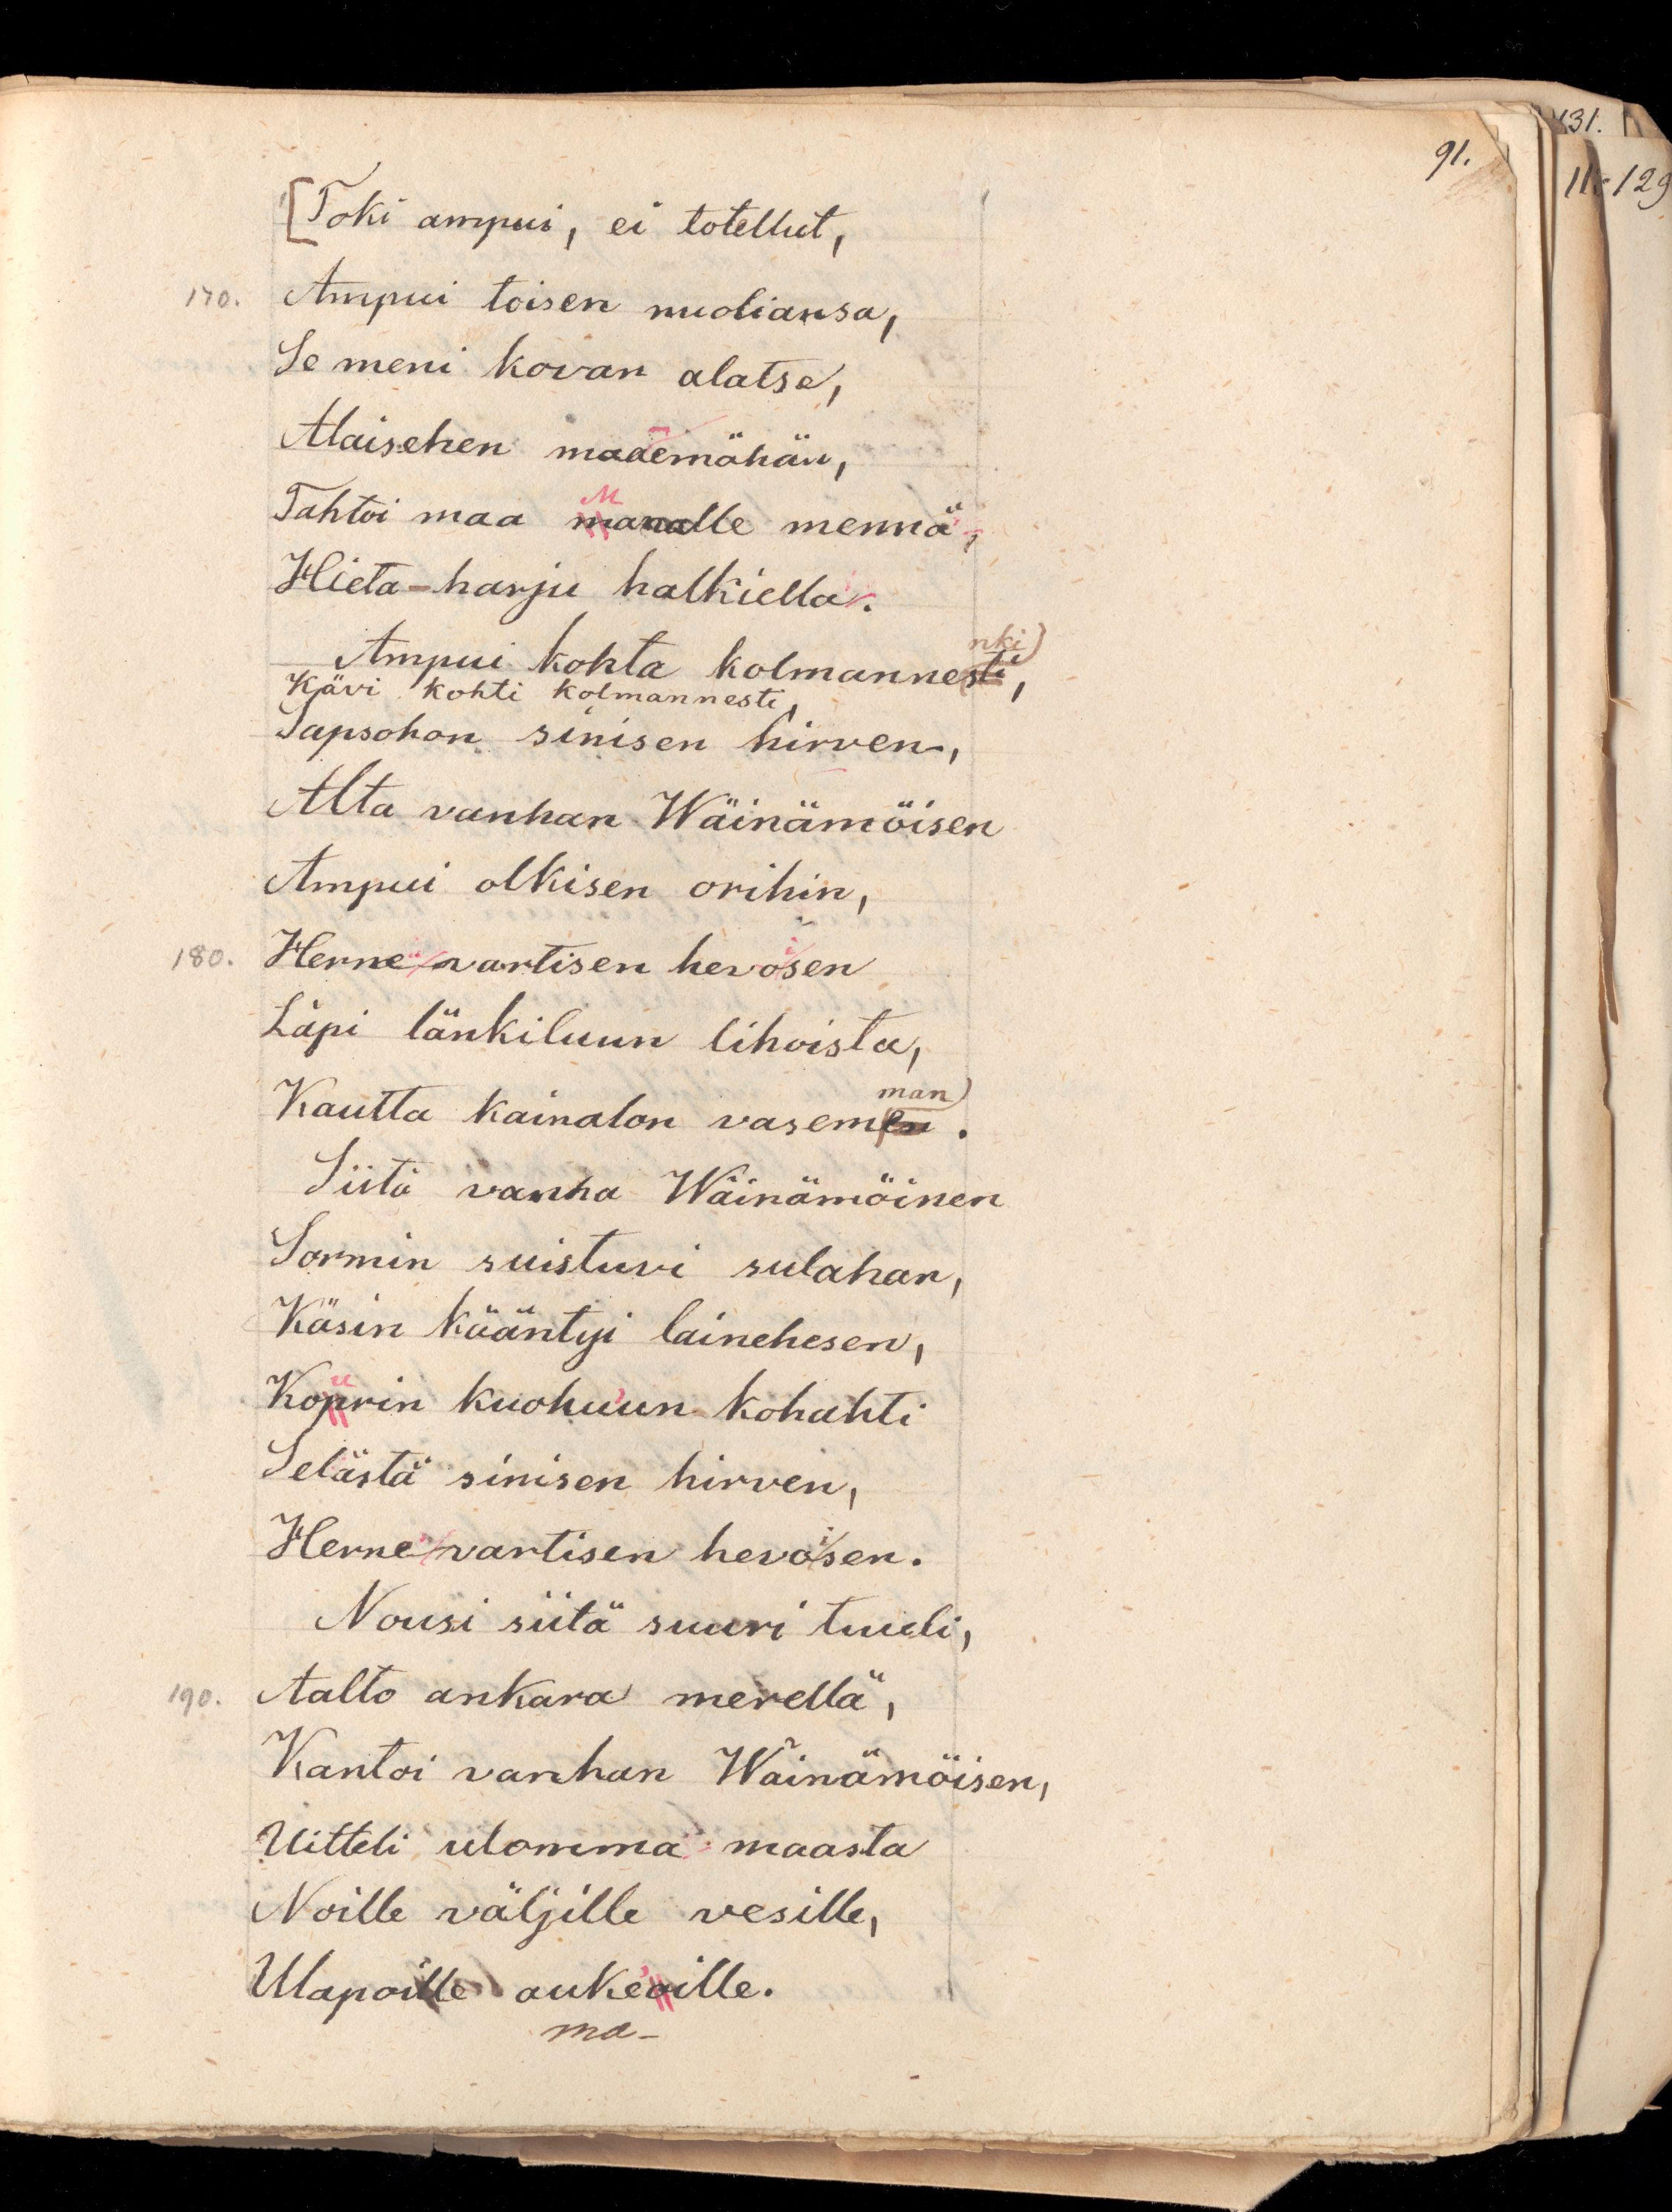 131.
11-129
91.
[Toki ampui, ei totellut,
170. Ampui toisen nuoliansa,
Se meni kovan alatse,
Alaisehen maaemähän,
M
Tahtoi maa manalle mennä,
Hieta-harju halkiella.
nki)
Ampui kohta kolmannesti,
Kävi kohti kolmannesti,
Sapsohon sinisen hirven,
Alta vanhan Wäinämöisen
Ampui olkisen orihin,
180. Herne vartisen hevosen
Läpi länkiluun lihoista,
man)
Kautta kainalon vasemen.
Siitä vanha Wäinämöinen
Sormin suistuvi sulahan,
Käsin kääntyi lainehesen,
u
Koprin kuohuun kohahti
Selästä sinisen hirven,
Herne vartisen hevosen.
Nousi siitä suuri tuuli,
190. Aalto ankara merellä,
Kantoi vanhan Wäinämöisen,
Uitteli ulomma maasta
Noille väljille vesille,
Ulapoille aukeoille.
ma-